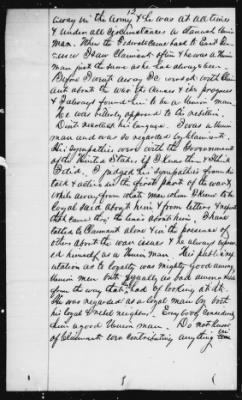 12
away in the Army & he was at all times
& under all circumstances a staunch Union
man. When the Federals came back to East
I saw Claimant often & he was a Union
man just the same as he had always been.
Before I went away I conversed with Claim-
ant about the war its causes & its progress
& I always found him to be a Union man.
He was bitterly opposed to the rebellion.
Don't recollect his language. I was a Union
man and was so regarded by Claimant.
His sympathies were with the Government
of the United States if I know them & I think
I did. I judged his sympathies from his
talk & actions in the first part of the war &
while away from that men whom I knew to be
loyal said about him & from letters & reports
that came thro the lines about him. I have
talked to Claimant alone & in the presence of
others about the war issues & he always express-
ed himself as a Union man. His public rep-
utation as to loyalty was mighty good among
Union men but equally as bad among rebels
from the way they had of looking at it.
He was regarded as a loyal man by both
his loyal & rebel neighbors. Everybody considered
him a good Union man. Do not know
of Claimant ever contributing anything